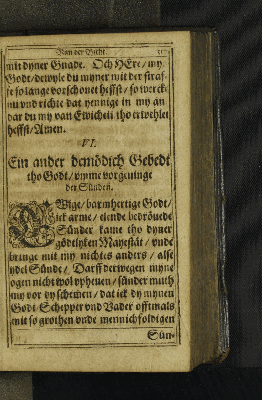 Van der Bicht.
mit dyner Gnade. Och HEre/ my
Godt/ dewyle du myner mit der straf-
fe so lange vorschonet heffst/ so wercke
nu vnd richte dat yennige in my an
dar du my van Ewicheit tho erwehlet
heffst/ Amen.
VI.
Ein ander demödich Gebedt
tho Godt/ vmme vorgevinge
der Sünden.
EWige/ barmhertige Godt/
ick arme/ elende bedröuede
Sünder kame tho dyner
gödtlyken Mayestät/ vnde
bringe mit my nichtes anders/ alse
ydel Sünde/ Darff derwegen myne
ogen nicht wol vpheuen/ sünder muth
my vor dy schemen/ dat ick dy mynen
Godt/ Schepper vnd Vader offtmals
mit so grothen vnde mennichfoldigen
Sün-